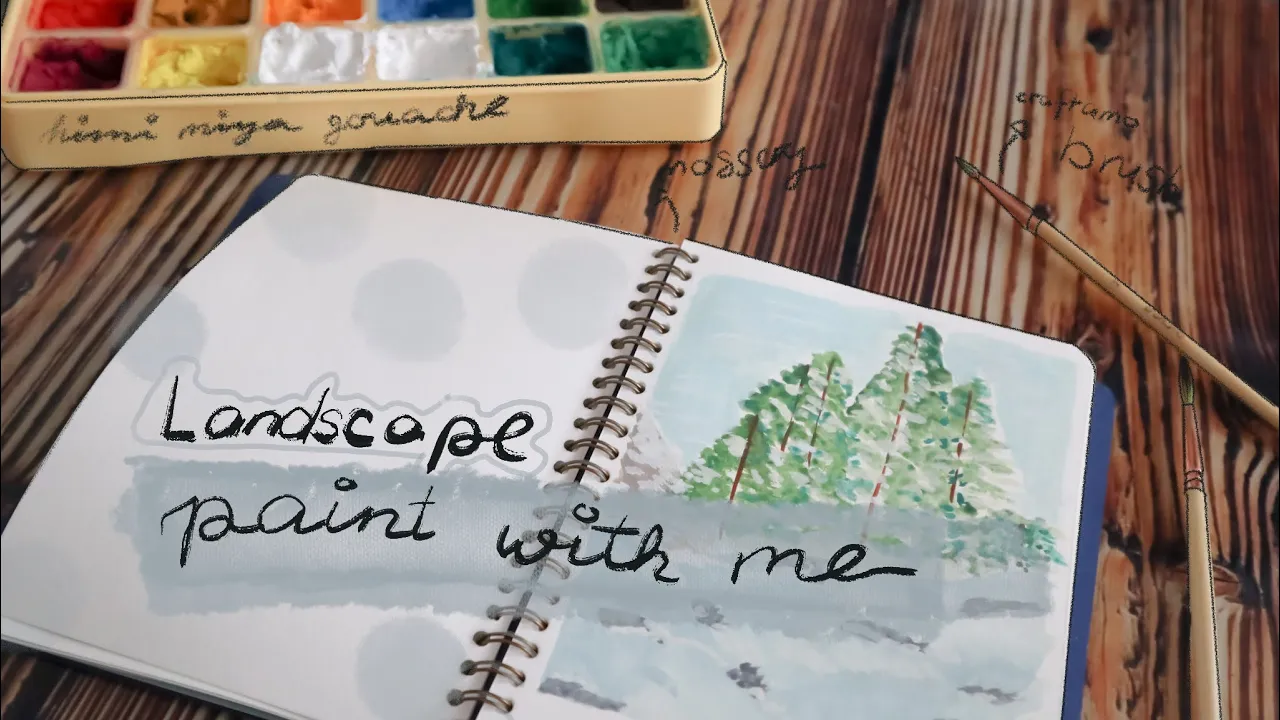 himi miya gouache
nossory
craftamo
brush
Landscape
paint with me